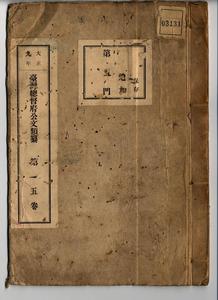 03131
大正
九年
臺灣總督府公文類纂
第一五卷
第五門